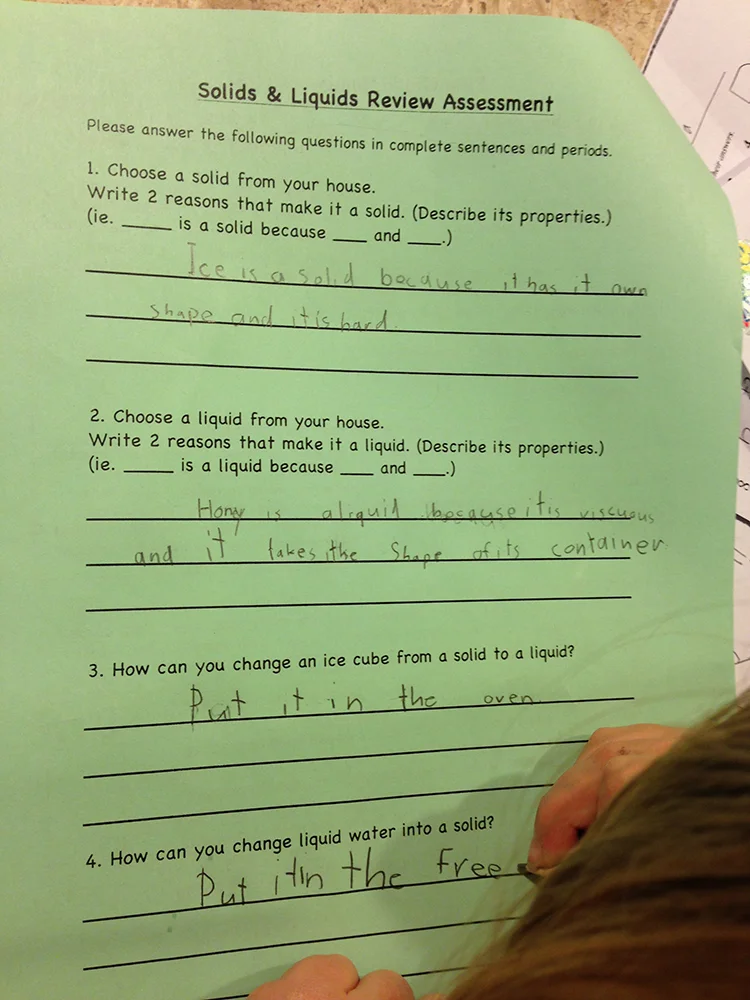 Solids & Liquids Review Assessment
Please answer the following questions in complete sentences and periods.
1. Choose a solid from your house.
Write 2 reasons that make it a solid. (Describe its properties.)
(ie. _____ is a solid because ___ and ___.)
Ice is a solid because it has it own
shape and it is hard.
2. Choose a liquid from your house.
Write 2 reasons that make it a liquid. (Describe its properties.)
(ie. _____ is a liquid because ___ and ___.)
Hony is a liquid because it is viscuous
and it takes the Shape of its container
3. How can you change an ice cube from a solid to a liquid?
Put it in the oven
4. How can you change liquid water into a solid?
Put it in the free